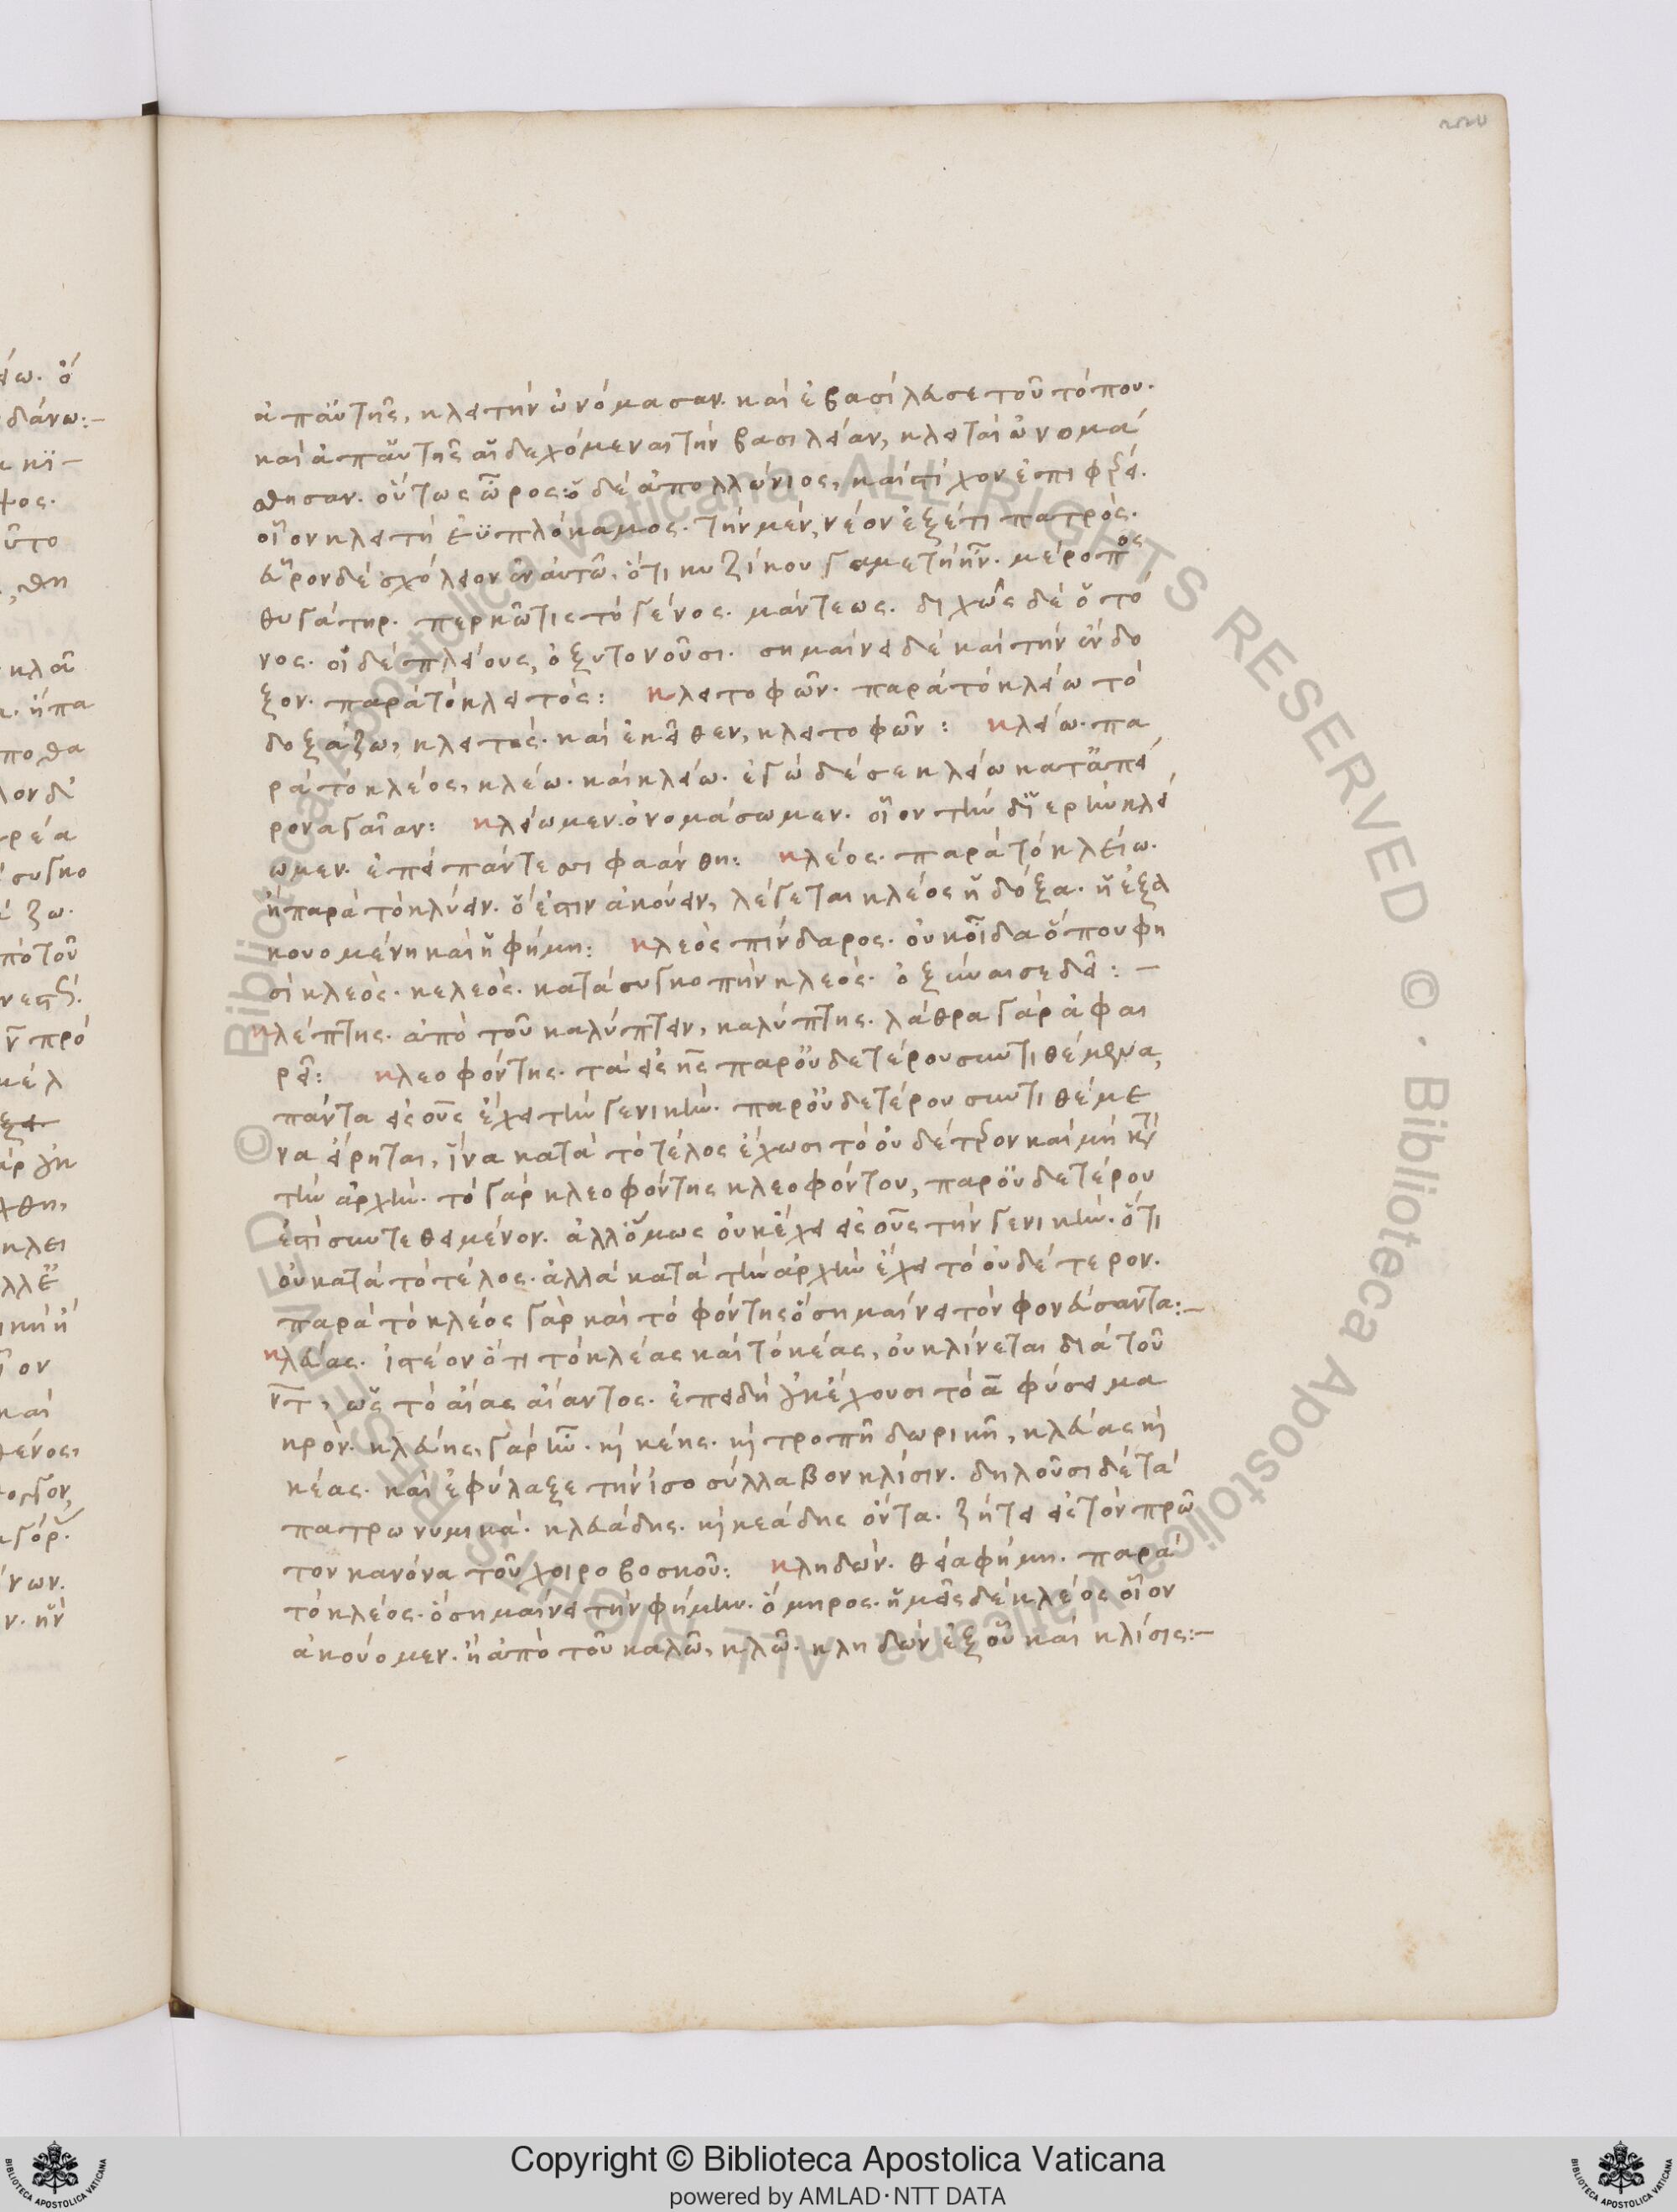 ἀπαὐτῆς, κλειτὴν ὠνόμασαν. καὶ ἐβασίλευσε τοῦ τόπου.
καὶ ἀπαὐτῆς αἱ δεχόμεναι τὴν βασιλείαν, κλειταὶ ὠνομά
σθησαν. οὕτως ὦρος: ὁ δὲ ἀπολλώνιος, καὶ στίχον ἐπιφέρει.
οἷον κλειτὴ ἐϋπλόκαμος. τὴν μὲν νέον ἐξέτι πατρός.
εὗρον δὲ σχόλιον ἐν αὐτῶ, ὅτι κυζίκου γαμετὴ ἦν. μέροπος
θυγάτηρ. περκῶτις τὸ γένος. μάντεως. διχῶς δὲ ὁ τό
νος. οἱ δὲ πλείους, ὀξυτονοῦσι. σημαίνει δὲ καὶ τὴν ἔνδο
ξον. παρὰ τὸ κλειτός: κλειτοφῶν. παρὰ τὸ κλείω τὸ
δοξάζω, κλειτός. καὶ ἐκεῖθεν, κλειτοφῶν: κλείω. πα
ρὰ τὸ κλέος, κλέω. καὶ κλείω. ἐγὼ δέ σε κλείω κατἀπεί
ρονα γαῖαν: κλείωμεν. ὀνομάσωμεν. οἷον τὴν διερὴν κλεί
ωμεν. ἐπεὶ πάντεσσι φαάνθη: κλέος. παρὰ τὸ κλείω.
ἢ παρὰ τὸ κλύειν. ὅ ἐστιν ἀκούειν, λέγεται κλέος ἡ δόξα. ἡ ἐξα
κουομένη καὶ ἡ φήμη: κλεὸς πίνδαρος. οὐκ οἶδα ὅπου φη
σὶ κλεός. κελεός. κατὰ συγκοπὴν κλεός. ὀξύναι σε δεῖ: –
κλέπτης. ἀπὸ τοῦ καλύπτειν, καλύπτης. λάθρα γὰρ ἀφαι
ρεῖ: κλεοφόντης. τὰ εἰς ης παροὐδετέρου συντιθέμενα,
πάντα εἰς ους ἔχει τὴν γενικήν. παροὐδετέρου συντιθέμε
να εἴρηται, ἵνα κατὰ τὸ τέλος ἔχωσι τὸ οὐδέτερον καὶ μὴ κατὰ
τὴν ἀρχήν. τὸ γὰρ κλεοφόντης κλεοφόντου, παροὐδετέρου
ἐστὶ συντεθειμένον. ἀλλὅμως οὐκ ἔχει εἰς ους τὴν γενικήν. ὅτι
οὐ κατὰ τὸ τέλος. ἀλλὰ κατὰ τὴν ἀρχὴν ἔχει τὸ οὐδέτερον.
παρὰ τὸ κλέος γὰρ καὶ τὸ φόντης ὃ σημαίνει τὸν φονεύσαντα: –
κλείας. ἰστέον ὅτι τὸ κλέας καὶ τὸ κέας, οὐ κλίνεται διὰ τοῦ
ντ, ὡς τὸ αἴας αἴαντος. ἐπειδὴ οὐκ ἔχουσι τὸ α φύσει μα
κρόν. κλείης, γὰρ ἦν. καὶ κέης. καὶ τροπῆ δωρικῆ, κλείας καὶ
κέας. καὶ ἐφύλαξε τὴν ἰσοσύλλαβον κλίσιν. δηλοῦσι δὲ τὰ
πατρωνυμικά. κλεάδης. καὶ κεάδης ὄντα. ζήτει εἰς τὸν πρῶ
τον κανόνα τοῦ χοιροβοσκοῦ: κληδών. θεία φήμη. παρὰ
τὸ κλέος. ὃ σημαίνει τὴν φήμην. ὅμηρος. ἡμεῖς δὲ κλέος οἶον
ἀκούομεν. ἢ ἀπὸ τοῦ καλῶ, κλῶ. κληδὼν ἐξοὗ καὶ κλίσις: –
Copyright © Biblioteca Apostolica Vaticana
powered by AMLAD·NTT DATA